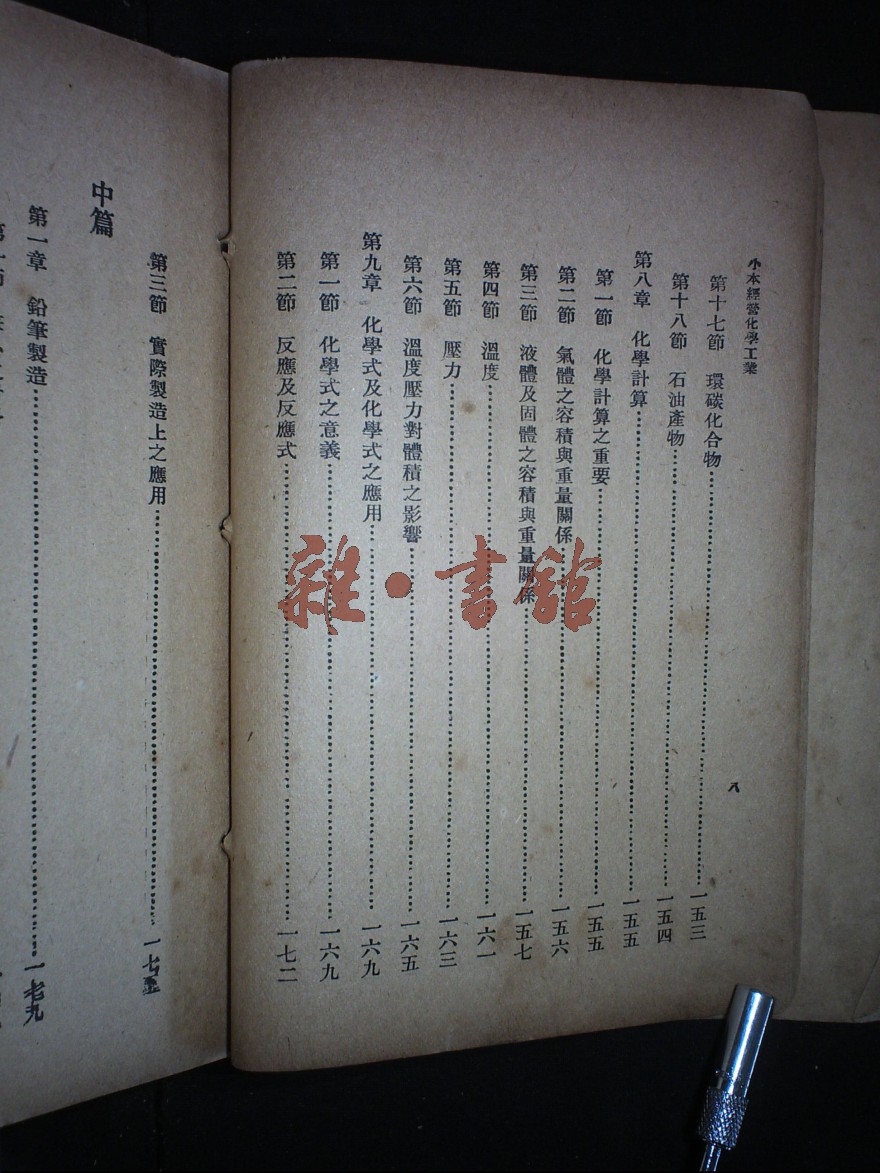 小本經營化學工業
第十七節 環碳化合物……一五三
第十八節 石油產物……一五四
第八章 化學計算……一五五
第一節 化學計算之重要……一五五
第二節 氣體之容積與重量關係……一五六
第三節 液體及固體之容積與重量關係……一五七
第四節 溫度……一六一
第五節 壓力……一六三
第六節 溫度壓力對體積之影響……一六五
第九章 化學式及化學式之應用……一六九
第一節 化學式之意義……一六九
第二節 反應及反應式……一七二
八
第三節 實際製造上之應用……一七五
中篇
第一章 鉛筆製造……一七九
雜·書館